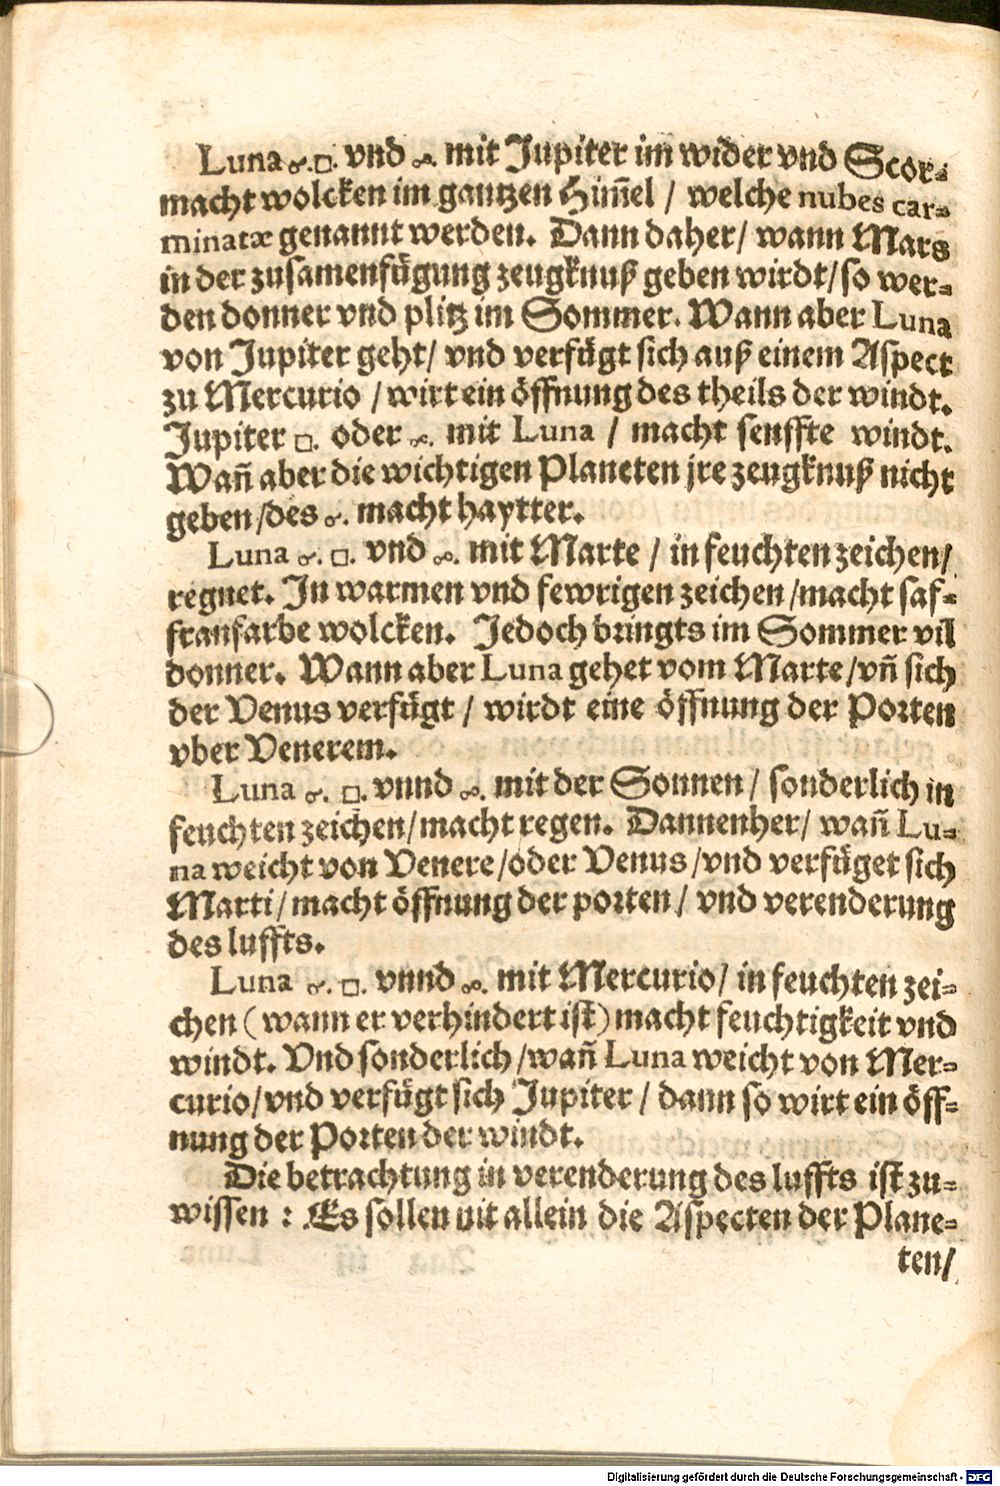 Luna ☌.□. vnd ☍. mit Jupiter im wider vnd Scor-
macht wolcken im gantzen Him̄el / welche nubes car-
minatæ genannt werden. Dann daher/ wann Mars
in der zusamenfügung zeugknuß geben wirdt/so wer-
den donner vnd plitz im Sommer. Wann aber Luna
von Jupiter geht/ vnd verfügt sich auß einem Aspect
zu Mercurio /wirt ein öffnung des theils der windt.
Jupiter □. oder ☍. mit Luna / macht senffte windt.
Wañ aber die wichtigen Planeten jre zeugknuß nicht
geben/des ☌. macht haytter.
Luna ☌. □. vnd ☍. mit Marte / in feuchten zeichen/
regnet. In warmen vnd fewrigen zeichen/macht saf-
franfarbe wolcken. Jedoch bringts im Sommer vil
donner. Wann aber Luna gehet vom Marte/vñ sich
der Venus verfügt / wirdt eine öffnung der Porten
vber Venerem.
Luna ☌. □. vnnd ☍. mit der Sonnen/ sonderlich in
feuchten zeichen/macht regen. Dannenher/ wañ Lu-
na weicht von Venere/oder Venus/vnd verfüget sich
Marti/macht öffnung der porten/ vnd verenderung
des luffts.
Luna ☌. □. vnnd ☍. mit Mercurio/ in feuchten zei-
chen (wann er verhindert ist) macht feuchtigkeit vnd
windt. Vnd sonderlich/wañ Luna weicht von Mer-
curio/vnd verfügt sich Jupiter/ dann so wirt ein öff-
nung der Porten der windt.
Die betrachtung in verenderung des luffts ist zu-
wissen : Es sollen nit allein die Aspecten der Plane-
ten/
Digitalisierung gefördert durch die Deutsche Forschungsgemeinschaft - DFG